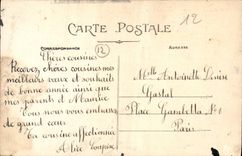 12
CARTE POSTALE
CORRESPONDANCE
ADRESSE
12
Chères cousines
Recevez chères cousines mes
meilleurs vœux et souhaits
de bonne année ainsi que
mes parents et Maurice
Tous nous vous embrassons
de grand cœur.
Ta cousine affectionnée
Alice
Melle Antoinette
Place Gambetta No 1
Paris